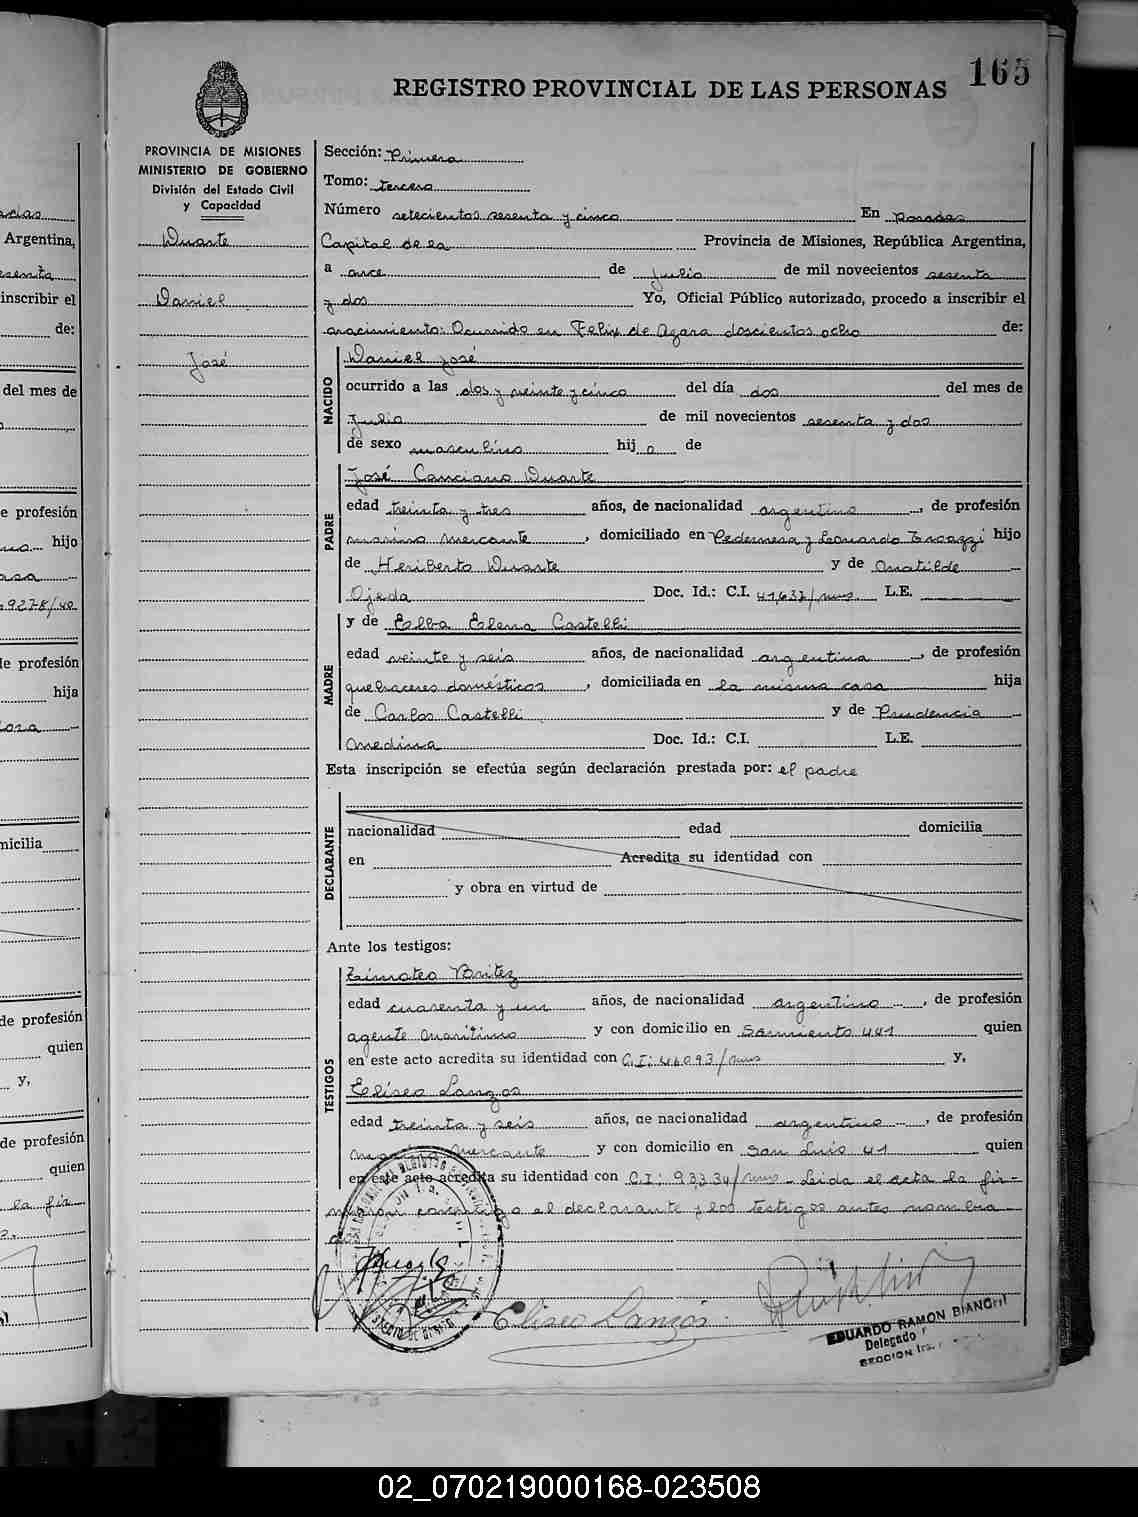 165
REGISTRO PROVINCIAL DE LAS PERSONAS
PROVINCIA DE MISIONES
MINISTERIO DE GOBIERNO
División del Estado Civil
y Capacidad
Duarte
Daniel
José
Sección: Primera
Tomo: tercero
Número setecientos sesenta y cinco En Posadas
Capital de la Provincia de Misiones, República Argentina,
a once de Julio de mil novecientos sesenta
y dos Yo, Oficial Público autorizado, procedo a inscribir el
nacimiento: Ocurrido en Felix de Azara doscientos ocho de:
NACIDO
Daniel José
ocurrido a las dos y veinte y cinco del día dos del mes de
Julio de mil novecientos sesenta y dos
de sexo masculino hij o de
PADRE
José Canciano Duarte
edad treinta y tres años, de nacionalidad argentino, de profesión
marino mercante, domiciliado en Pedernera y Leonardo hijo
de Heriberto Duarte y de Matilde
Ojeda Doc. Id.: C.I. 41,637/mns. L.E.
MADRE
y de Elba Elena Castelli
edad veinte y seis años, de nacionalidad argentina, de profesión
quehaceres domésticos, domiciliada en la misma casa hija
de Carlos Castelli y de Prudencia
Medina Doc. Id.: C.I. L.E.
Esta inscripción se efectúa según declaración prestada por: el padre
DECLARANTE
nacionalidad edad domicilia
en Acredita su identidad con
y obra en virtud de
Ante los testigos:
TESTIGOS
Timoteo Britez
edad cuarenta y un años, de nacionalidad argentino, de profesión
agente Marítimo y con domicilio en Sarmiento 441 quien
en este acto acredita su identidad con C.I: 46093/mns y,
Eliseo Lanzos
edad treinta y seis años, de nacionalidad argentino, de profesión
Mercante y con domicilio en San Luis 41 quien
en este acto acredita su identidad con C.I: 93334/mns - Leida el acta la fir-
conmigo el declarante y los testigos antes nombra
Eliseo Lanzos.
EDUARDO RAMON
Delegado
SECCION
Argentina,
inscribir el
de:
del mes de
e profesión
hijo
9278/40
de profesión
hija
micilia
de profesión
quien
y,
de profesión
quien
la fir
02_070219000168-023508